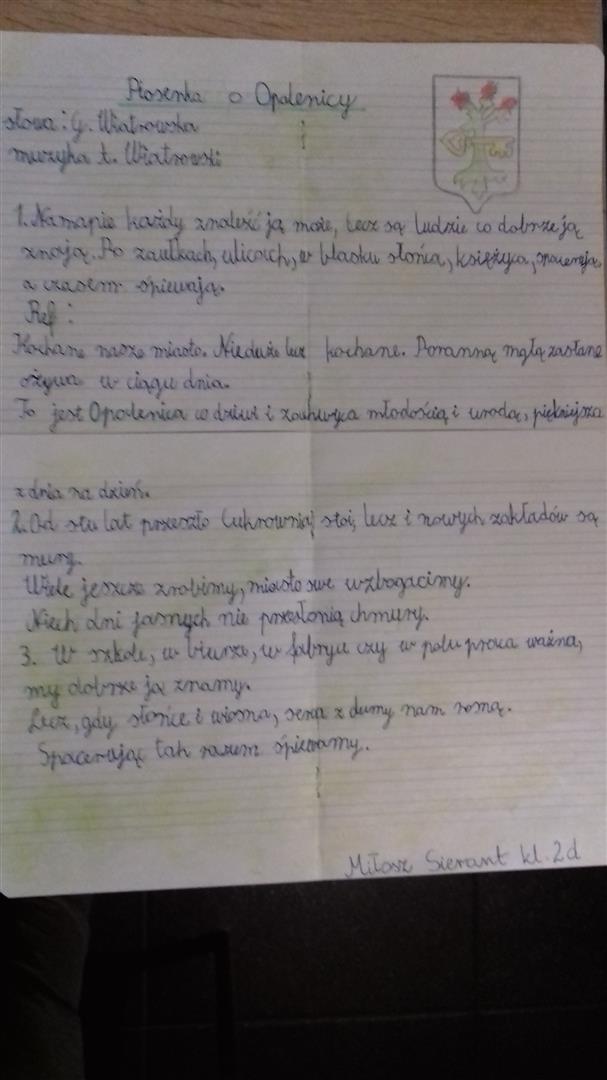 Piosenka o Opalenicy
słowa: G. Wiatrowska
muzyka Ł. Wiatrowski
1. Na mapie każdy znaleźć ją może, lecz są ludzie co dobrze ją
znają. Po zaułkach, ulicach, w blasku słońca, księżyca, spacerują,
a czasem śpiewają.
Ref:
Kochane nasze miasto. Nieduże lecz kochane. Poranną mgłą zasłane
ożywa w ciągu dnia.
To jest Opalenica co dziwi i zachwyca młodością i urodą, piękniejsza
z dnia na dzień.
2. Od stu lat przeszło Cukrownia stoi, lecz i nowych zakładów są
mury.
Wiele jeszcze zrobimy, miasto swe wzbogacimy.
Niech dni jasnych nie przesłonią chmury.
3. W szkole, w biurze, w fabryce czy w polu praca ważna,
my dobrze ją znamy.
Lecz, gdy słońce i wiosna, serca z dumy nam rosną.
Spacerując tak razem śpiewamy.
Miłosz Sierant kl. 2d